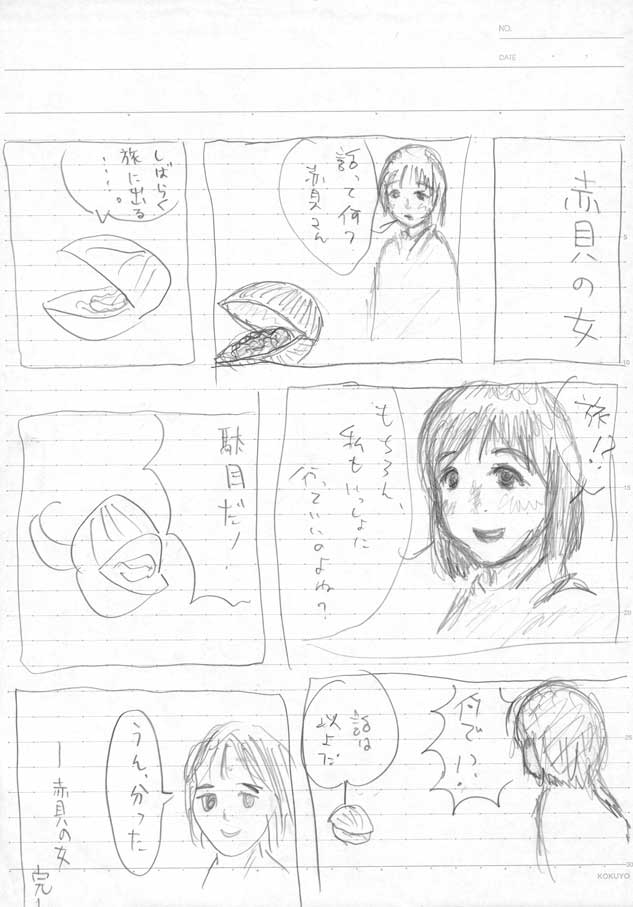 NO.
DATE
赤貝の女
話って何?
赤貝さん
しばらく
旅に出る
・・・・。
旅!?
もちろん、
私もいっしょに
行っていいのよね?
駄目だ!
何で!?
話は
以上だ
うん、分った
ー赤貝の女
完ー
5
10
15
20
25
30
KOKUYO